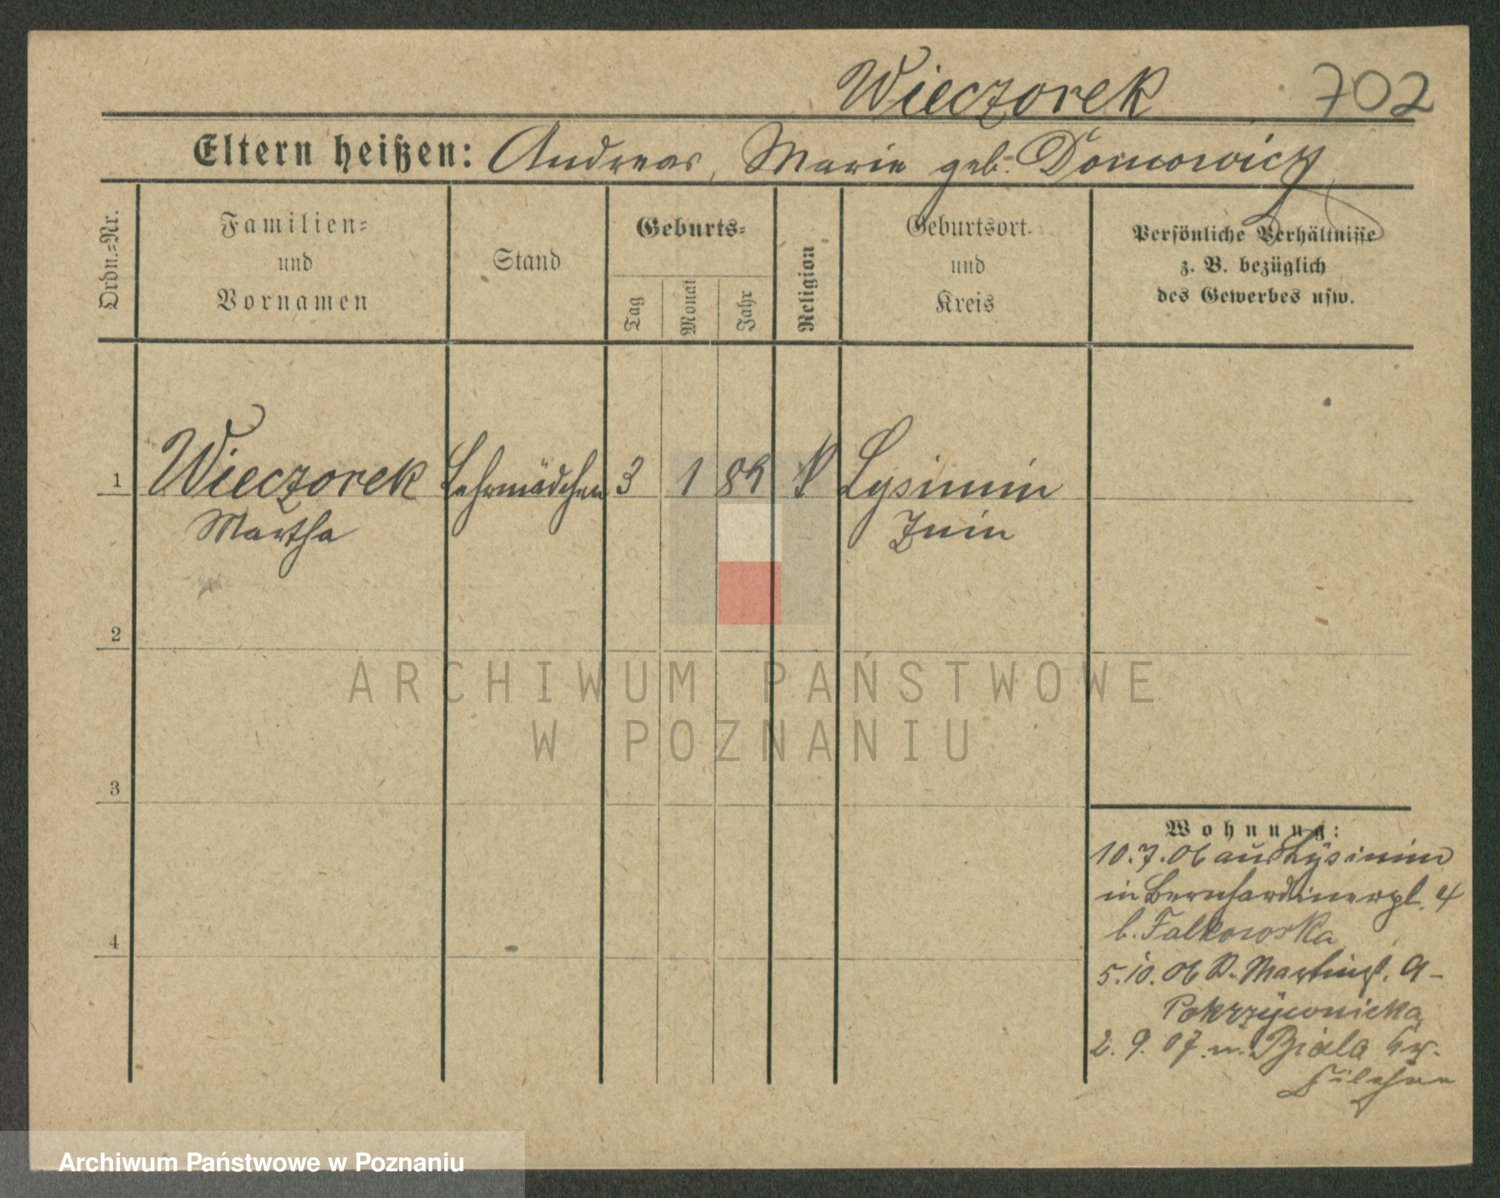 Wieczorek 702
Eltern heißen: Andreas, Marie geb. Domowicz
Ordn.-Nr.
Familien-
und
Vornamen
Stand
Geburts-
Tag
Monat
Jahr
Religion
Geburtsort
und
Kreis
Persönliche Verhältnisse
z. B. bezüglich
des Gewerbes usw.
1 Wieczorek Lehrmädchen 3 1 89 Lysinin
Martha Znin
2
3
4
Wohnung:
10.7.06 aus Lysinin
in Bernhardinerpl. 4
b. Falkowska
5.10.06 St. Martinst. 9-
Pokrzywnicka
2.9.07 n. Biala Kr.
Filehne
ARCHIWUM PAŃSTWOWE
W POZNANIU
Archiwum Państwowe w Poznaniu